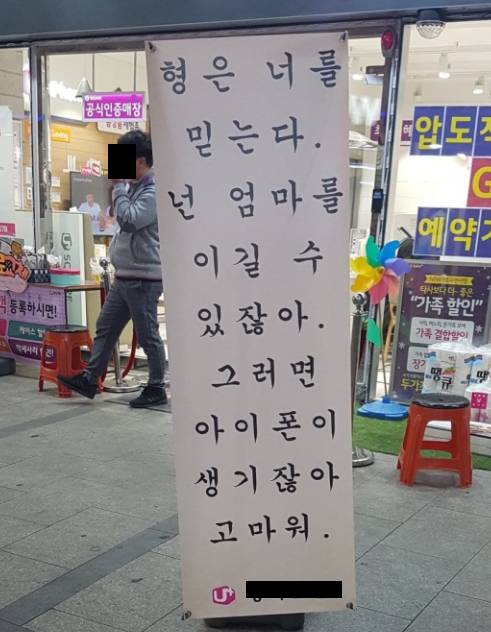 형은 너를
믿는다.
넌 엄마를
이길 수
있잖아.
그러면
아이폰이
생기잖아
고마워.
U+
공식인증매장
등록하시면!
압도적
예약가
타사보다 더- 좋은
"가족 할인"
가족 결합할인
땡큐